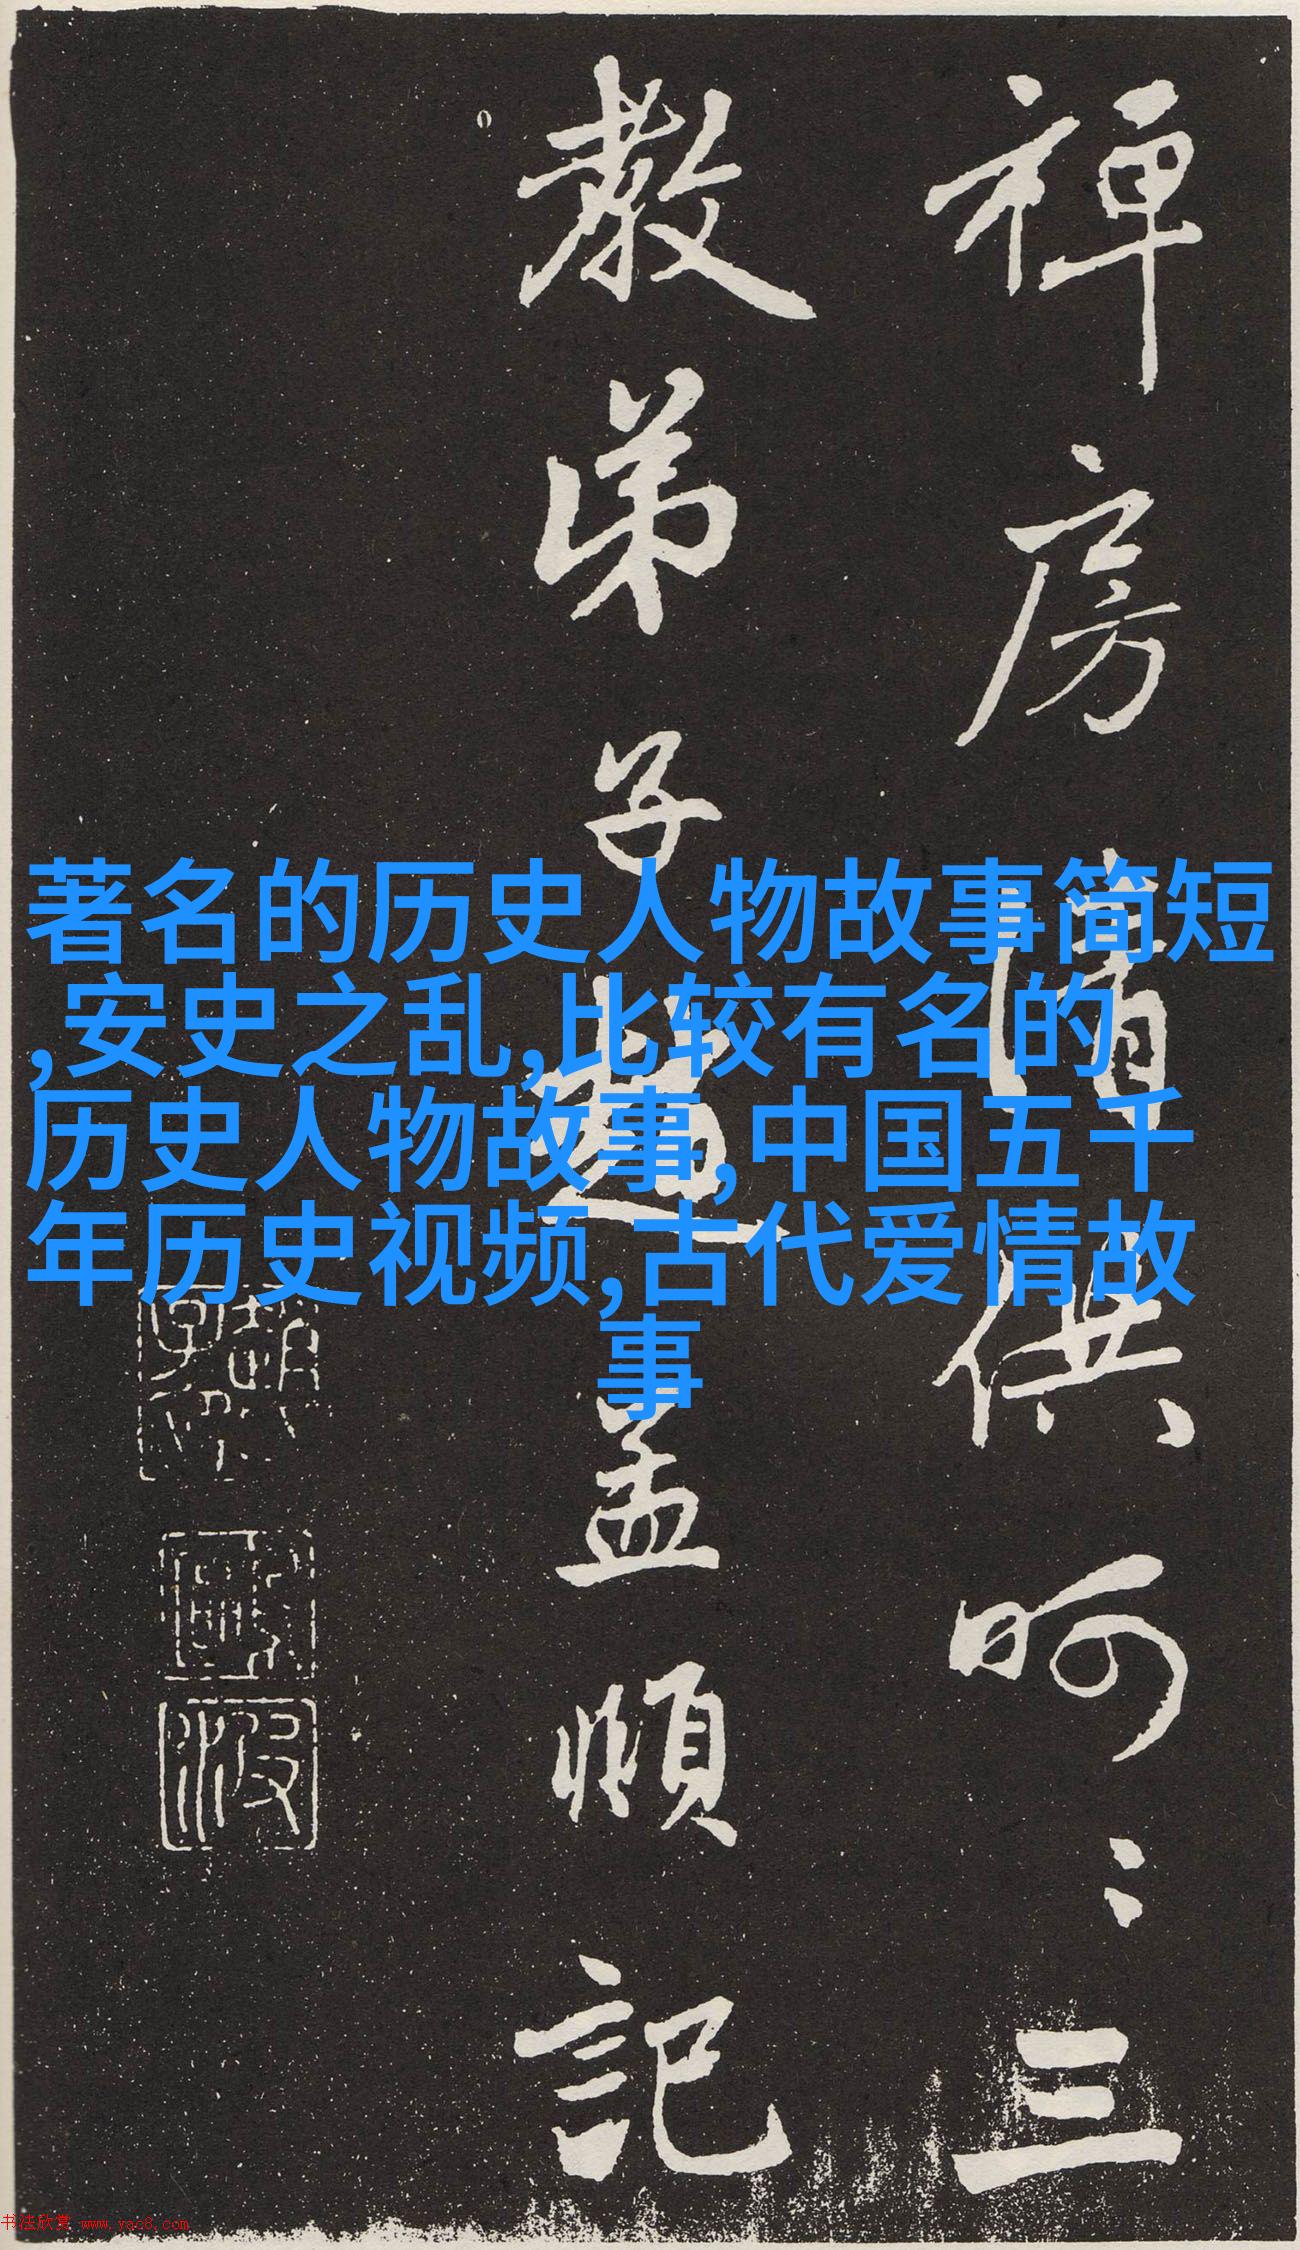 禅房清供呵呵三
教弟子趙孟頫記
著名的历史人物故事简短
,安史之乱,比较有名的
历史人物故事,中国五千
年历史视频,古代爱情故
事
书法欣赏 www.yac8.com